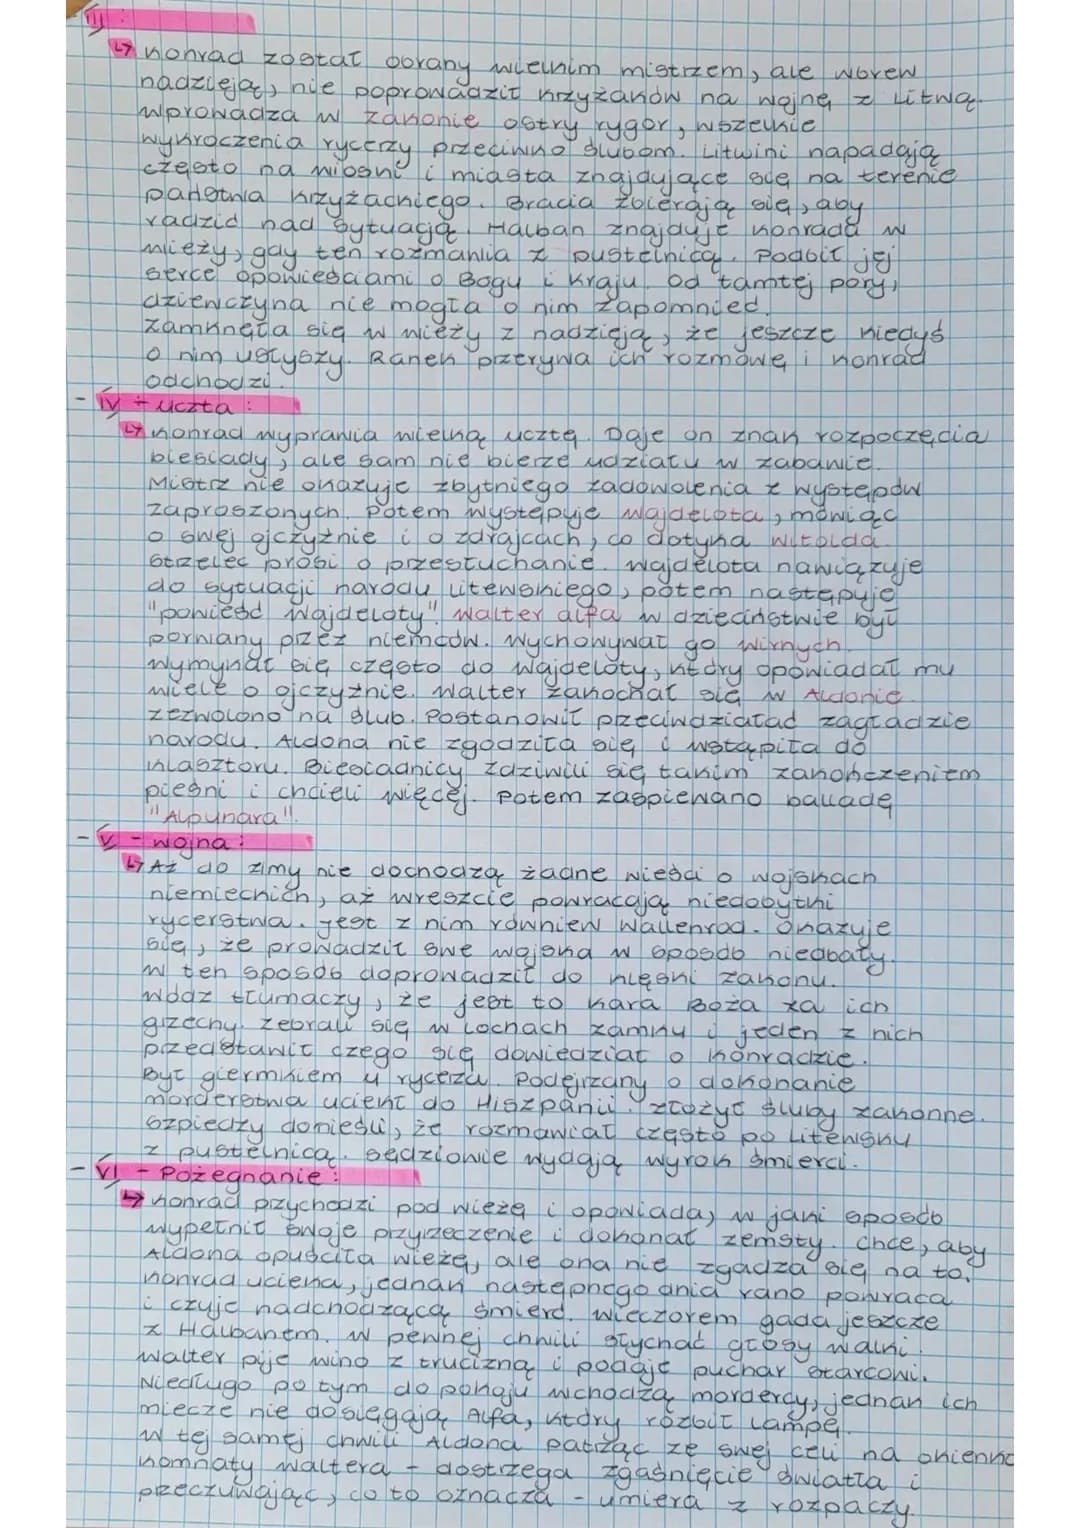 III :
↳ Konrad został obrany wielkim mistrzem, ale wbrew
nadzieją, nie poprowadził krzyżaków na wojnę z Litwą.
Wprowadza w zakonie ostry rygor, wszelkie
wykroczenia rycerzy przeciwko ślubom. Litwini napadają
często na wioski i miasta znajdujące się na terenie
państwa krzyżackiego. Bracia zbierają się, aby
radzić nad sytuacją. Halban znajduje Konrada w
wieży, gdy ten rozmawia z pustelnicą. Podbił jej
serce opowieściami o Bogu i kraju. Od tamtej pory,
dziewczyna nie mogła o nim zapomnieć.
Zamknęła się w wieży z nadzieją, że jeszcze kiedyś
o nim usłyszy. Ranek przerywa ich rozmowę i Konrad
odchodzi.
- IV - Uczta :
↳ Konrad wyprawia wielką ucztę. Daje on znak rozpoczęcia
biesiady, ale sam nie bierze udziału w zabawie.
Mistrz nie okazuje zbytniego zadowolenia z występów
zaproszonych. Potem występuje Wajdelota, mówiąc
o swej ojczyźnie i o zdrajcach, co dotyka Witolda.
Strzelec prosi o przesłuchanie. Wajdelota nawiązuje
do sytuacji narodu litewskiego, potem następuje
"powieść Wajdeloty". Walter alfa w dzieciństwie był
porwany przez niemców. Wychowywał go Winrych.
Wymykał się często do Wajdeloty, który opowiadał mu
wiele o ojczyźnie. Walter zakochał się w Aldonie.
Zezwolono na ślub. Postanowił przeciwdziałać zagładzie
narodu. Aldona nie zgodziła się i wstąpiła do
klasztoru. Biesiadnicy zdziwili się takim zakończeniem
pieśni i chcieli więcej. Potem zaśpiewano balladę
"Alpuhara".
- V - wojna :
↳ Aż do zimy nie dochodzą żadne wieści o wojskach
niemieckich, aż wreszcie powracają niedobytki
rycerstwa. Jest z nim również Wallenrod. Okazuje
się, że prowadził swe wojska w sposób niedbały.
W ten sposób doprowadził do klęski zakonu.
Wódz tłumaczy, że jest to kara Boża za ich
grzechy. Zebrali się w lochach zamku i jeden z nich
przedstawił czego się dowiedział o Konradzie.
Był giermkiem u rycerza. Podejrzany o dokonanie
morderstwa uciekł do Hiszpanii. Złożył śluby zakonne.
Szpiedzy donieśli, że rozmawiał często po Litewsku
z pustelnicą. Sędziowie wydają wyrok śmierci.
- VI - Pożegnanie :
↳ Konrad przychodzi pod wieżę i opowiada, w jaki sposób
wypełnił swoje przyrzeczenie i dokonał zemsty. Chce, aby
Aldona opuściła wieżę, ale ona nie zgadza się na to.
Konrad ucieka, jednak następnego dnia rano powraca
i czuje nadchodzącą śmierć. Wieczorem gada jeszcze
z Halbanem. W pewnej chwili słychać głosy walki.
Walter pije wino z trucizną i podaje puchar starcowi.
Niedługo po tym do pokoju wchodzą mordercy, jednak ich
miecze nie dosięgają Alfa, który rozbił lampę.
W tej samej chwili Aldona patrząc ze swej celi na okienko
komnaty Waltera - dostrzega zgaśnięcie światła i
przeczuwając, co to oznacza - umiera z rozpaczy.